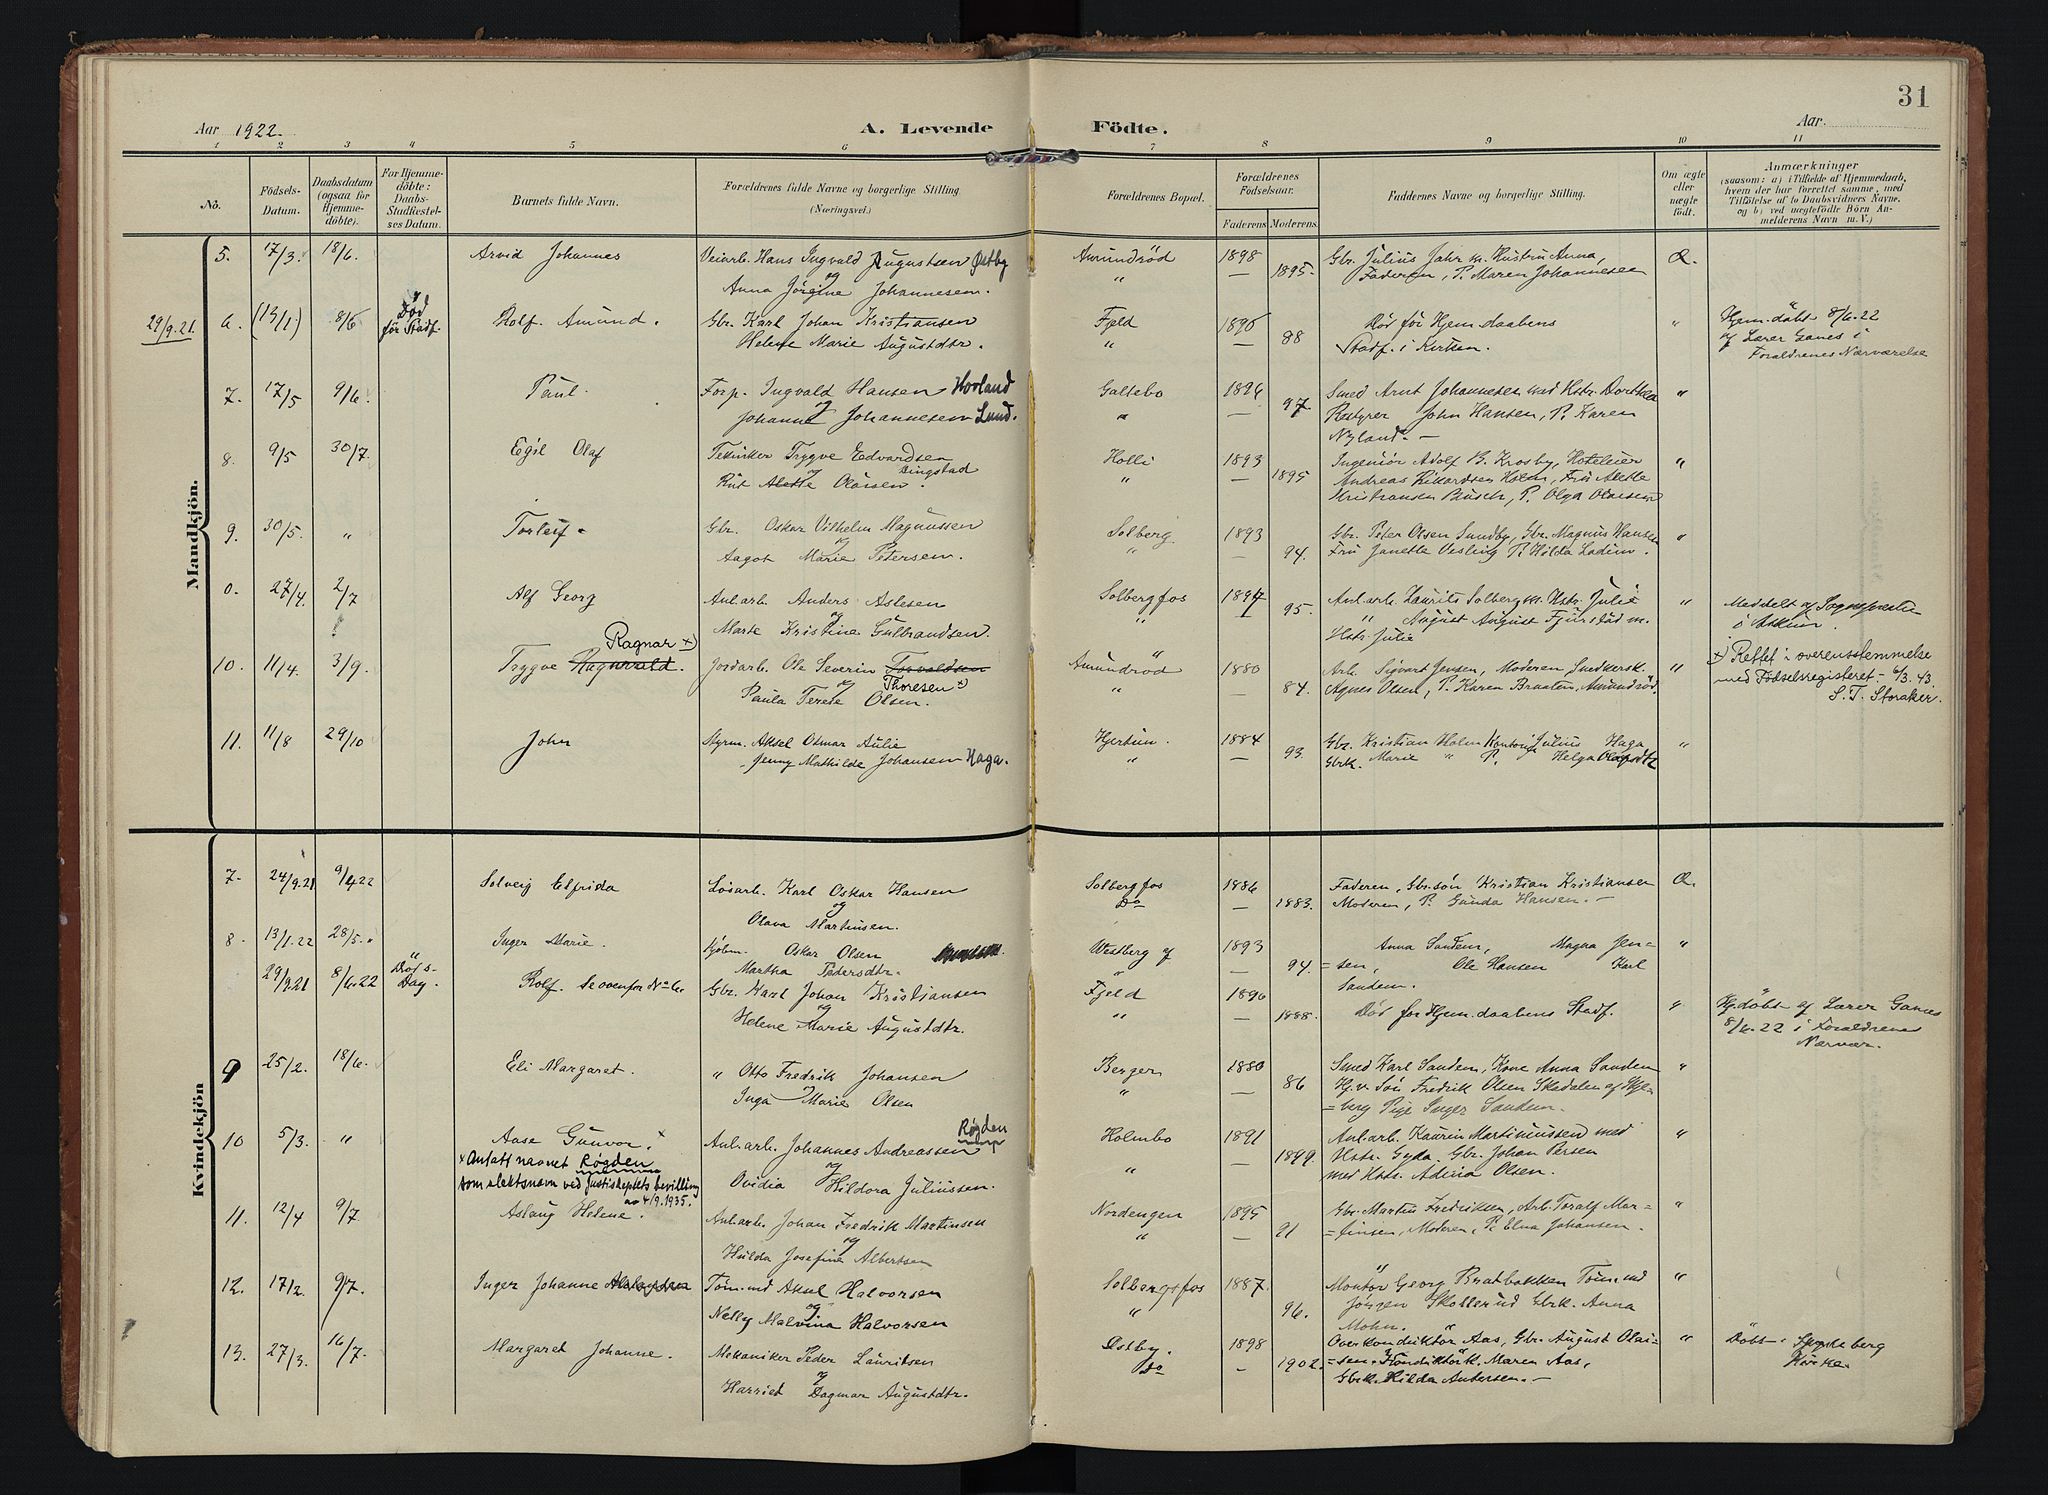 31
Aar 1922.
A. Levende Födte.
Aar.
1 2 3 4 5 6 7 8 9 10 11
No.
Födsels-Datum.
Daabsdatum (ogsaa for Hjemme-döbte).
For Hjemme-döbte: Daabs-Stadfæstel-ses Datum.
Barnets fulde Navn.
Forældrenes fulde Navne og borgerlige Stilling. (Næringsvei.)
Forældrenes Bopæl.
Forældrenes Födselsaar.
Faderens Moderens
Faddernes Navne og borgerlige Stilling.
Om ægte eller uægte födt.
Anmærkninger (saasom: a) i Tilfælde af Hjemmedaab, hvem der har forrettet samme, med Tilföielse af to Daabsvidners Navne, og b) ved uægtefödte Börn An-melderens Navn m. V.)
Mandkjön.
5. 17/3. 18/6. Arvid Johannes Veiarb. Hans Ingvald Augustsen Østby Amundröd 1898 Gbr. Julius Jahr m. Hustru Anna, Æ.
og
Anna Jörgine Johannesen. " — 1895. Faderen, P. Maren Johannesen
29/9.21. 6. (13/1) 8/6 Död för Stadf. Rolf. Amund. Gbr. Karl Johan Kristiansen Fjeld 1890 Död för Hjem.daabens " Hjem.döbt 8/6.22
Helene Marie Augustdtr. " — 88 Stadf. i Kirken. af Lærer Ganes i
Forældrenes Nærværelse
7. 17/5 9/6. Paul. Forp. Ingvald Hansen Hovland Galtebo 1896 Smed Arnt Johannesen med Hstr. Dorthea "
og
Johanne Johannesen Lund. " — 97. John Hansen, P. Karen
Nyland. —
8. 9/5 30/7. Egil Olaf Tekniker Trygve Edvardsen Holli 1893 Ingeniör Adolf B. Krosby, Hoteleier "
Ringstad
og
Rut Alette Olaisen. " — 1895 Andreas Rikardsen Holm, Fru Alette
Kristiansen Busch, P. Olga Olaisen
9. 30/5. " Torleif. Gbr. Oskar Vilhelm Magnussen Solberg 1893 Gbr. Peter Olsen Sundby, Gbr. Magnus Hansen "
og
Aagot Marie Petersen. " — 94. Fru Janette Vesling P. Hilda Ladim.
0. 27/4. 2/7 Alf Georg Anl.arb. Anders Aslesen Solbergfos 1894 Anl.arb. Laurits Solberg m. Hstr. Julie " Meddelt af Sognepresten
og
Marte Kristine Gulbrandsen. " — 95. " August August Fjurstad m. i Askim.
Hstr. Julie
Ragnar x)
10. 11/4. 3/9. Trygve Ragnvald. Jordarb. Ole Severin Torvaldsen Amundröd 1880 Arb. Sigvart Jensen, Moderen, Snedkersk. " x) Rettet i overensstemmelse
og Thoresen x)
Paula Terese Olsen. " 84. Agnes Olsen, P. Karen Braaten, Amundröd. med Födselsregisteret. - 6/3. 43.
S. T. Storaker.
11. 11/8 29/10 John Styrm. Aksel Otmar Aulie Hjertum. 1884 Gbr. Kristian Holm Julius Haga "
Jenny Mathilde Johansen Haga. " — 93. Gbrk. Marie " P. Helga Olafsdtr
Kvindekjön
7. 24/9.21 9/4 22 Solveig Elfrida Lösarb. Karl Oskar Hansen Solbergfos 1886 Faderen, Gbr.sön Kristian Kristiansen Æ.
og
Olava Martinsen. Do — 1883. Moderen, P. Gunda Hansen. —
8. 13/1.22 28/5. " Inger Marie. Oskar Olsen Westberg 1893 Anna Sandem, Magna Jen= "
Martha Pedersdtr. " 94. =sen, Ole Hansen Karl
Sandem.
29/9.21 8/6.22 Död s. Dag. Rolf. Se ovenfor No 6. Gbr. Karl Johan Kristiansen Fjeld 1890
og
Helene Marie Augustdtr. " — 1888. Död för Hjem.daabens Stadf. " Hj.döbt af Lærer Ganes
8/6.22 i Forældrenes
Nærvær.
9 25/2. 18/6. Eli Margaret. " Otto Fredrik Johansen Berger 1880 Smed Karl Sandem, Kone Anna Sandem "
Inga Marie Olsen " — 86 Sön Fredrik Olsen Skadalen af
=berg Pige Inger Sandem.
10 5/3. " Aase Gunvor. x Anl.arb. Johannes Andreassen Røgden Holmbo 1891 Anl.arb. Kaurin Martinussen med "
x Antatt navnet Røgden
som slektsnavn ved Justisdeptets bevilling
av 4/9.1935.
og
Ovidia Hildora Juliussen. " 1899. Hstr. Gyda. Gbr. Johan Persen
med Hstr. Adina Olsen.
11. 12/4 9/7. Aslaug Helene. Anl.arb. Johan Fredrik Martinsen Nordengen 1895 Gbr. Martin Fredriksen, Arb. Toralf Mar= "
og
Hulda Josefine Albertsen " — 91 =tinsen, Moderen, P. Elna Johansen.
12. 17/2. 9/7. Inger Johanne Töm.md Aksel Halvorsen Solbergsfos 1887. Montör Georg Bratbakken Töm.md "
og
Nelly Malvina Halvorsen " 96. Jörgen Skollerud Gbrk. Anna
Mohn.
13. 27/3. 16/7. Margaret Johanne. Mekaniker Peder Lauritsen Östby. 1898 Overkonduktör Aas, Gbr. August Olai= " Döbt i Spydeberg
og
Harriet Dagmar Augustdtr. Do - 1902. =sen, Konduktörk. Maren Aas, Kirke.
Gbrk. Hilda Andersen. —